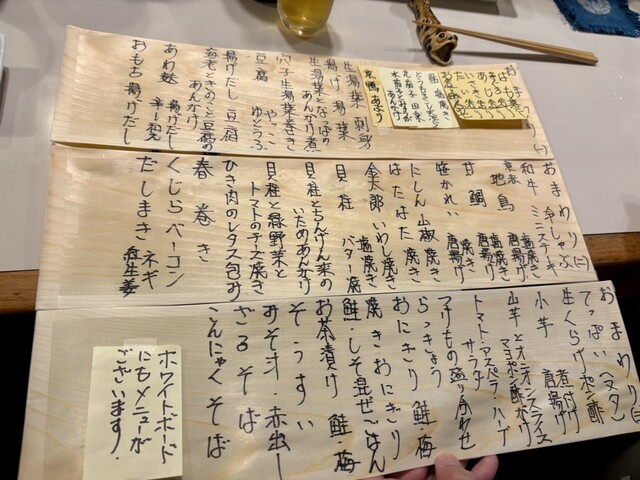 おまわり(一)
京鴨 あぶり
生湯葉 刺身
揚げ湯葉
生湯葉となっぱのあんかけ煮
穴子生湯葉巻き
豆腐 やっこ ゆどうふ
揚げだし豆腐
海老ときのこと豆腐のあんかけ
あわ麩 揚げだし
おもち揚げだし
おまわり(二)
和牛 冷しゃぶ
ミニステーキ
京赤地鳥 塩焼き 唐揚げ
甘鯛 塩焼き 唐揚げ
笹かれい 焼き 唐揚げ
にしん 山椒焼き
はたはた 焼き
金太郎いわし 塩焼き
貝柱 バター焼
貝柱とちんげん菜のいためあんかけ
貝柱と緑野菜とトマトのチーズ焼き
ひき肉のレタス包み
春巻き
くじらベーコン
だしまき ネギ 紅生姜
おまわり(三)
てっぱい(ヌタ)
生くらげポン酢
小芋 煮付け 唐揚げ
山芋とオニオンスライス マヨポン酢かけ
トマト・アスパラ・ハーブ サラダ
つけもの盛り合わせ
らっきょう
おにぎり 鮭 梅
焼きおにぎり
鮭・しそ混ぜごはん
お茶漬け 鮭・梅
ぞうすい
みそ汁・赤出し
ざるそば
こんにゃくそば
ホワイトボード
にもメニューが
ございます。